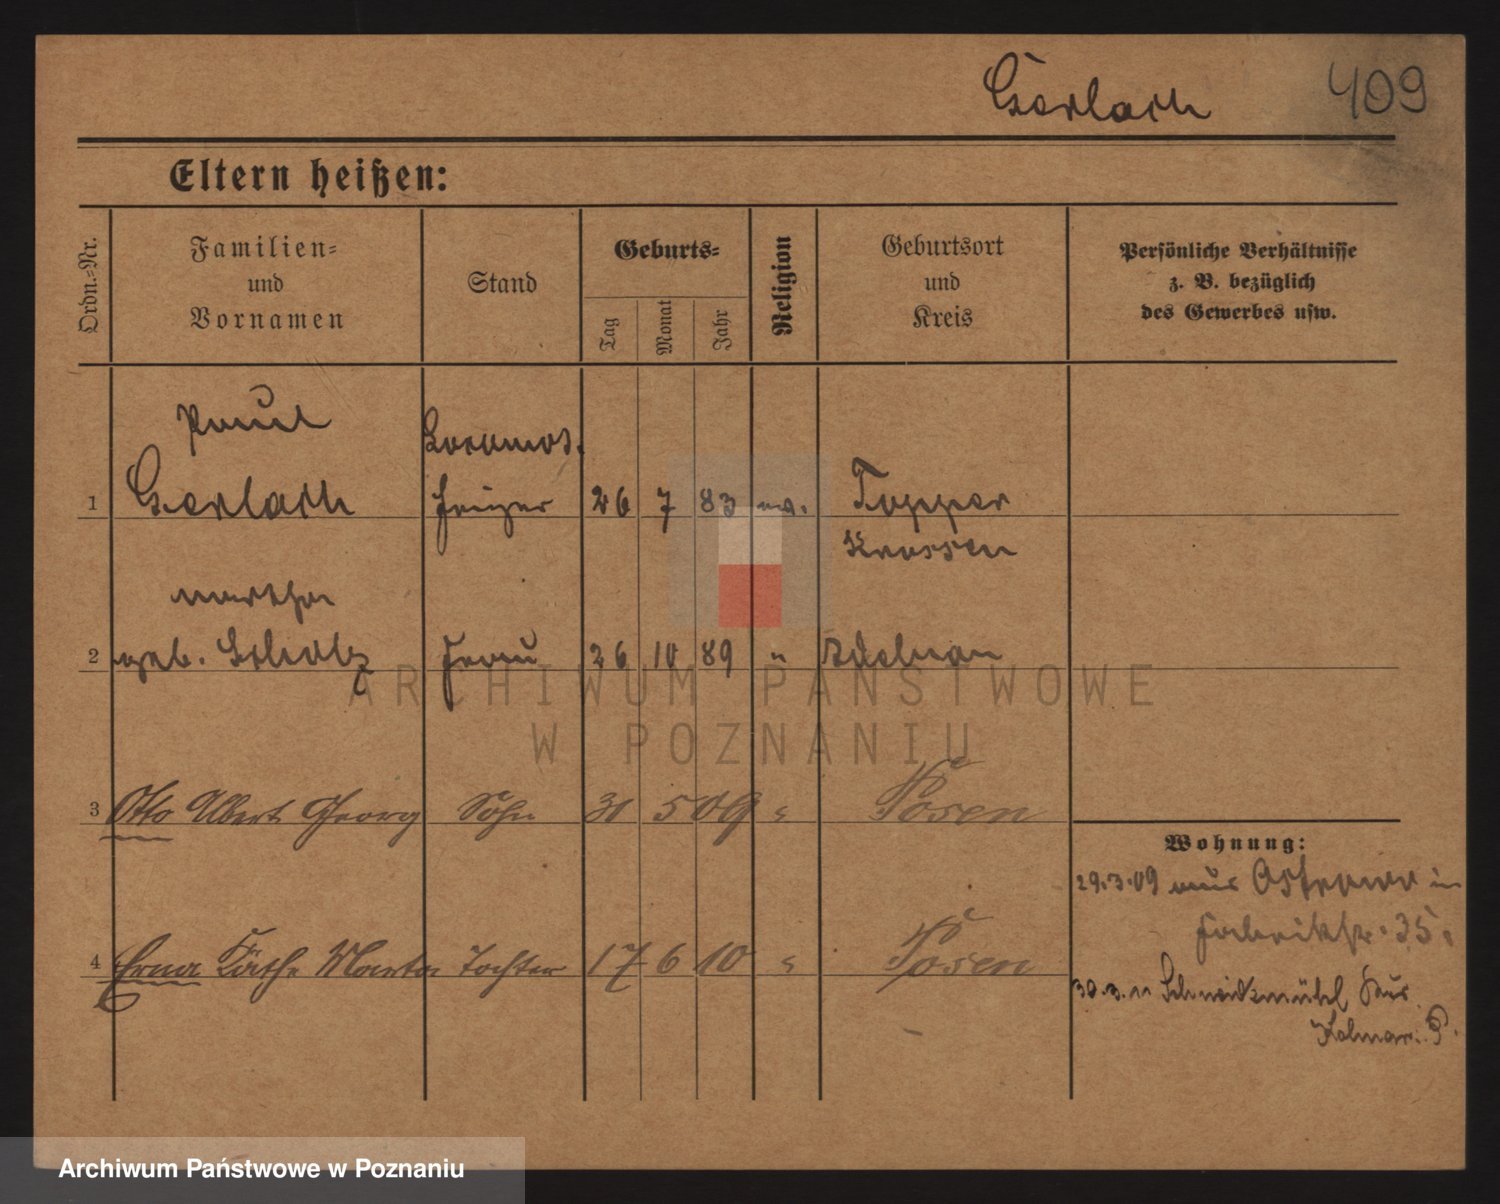 Gerlach 409
Eltern heißen:
Ordn.-Nr.
Familien-
und
Vornamen
Stand
Geburts-
Tag
Monat
Jahr
Religion
Geburtsort
und
Kreis
Persönliche Verhältnisse
z. B. bezüglich
des Gewerbes usw.
Paul Locomot.
1 Gerlach Heizer 26 7 83 ev. Topper
Krossen
Martha
2 geb. Scholz Frau 26 10 89 " Adelnau
ARCHIWUM PAŃSTWOWE
W POZNANIU
3 Otto Albert Georg Sohn 31 5 09 " Posen
Wohnung:
29.3.09 aus Ostrowo in
Fabrikstr. 35.
4 Erna Käthe Marta Tochter 17 6 10 " Posen
30.3.11 Schneidemühl
Kolmar. P.
Archiwum Państwowe w Poznaniu